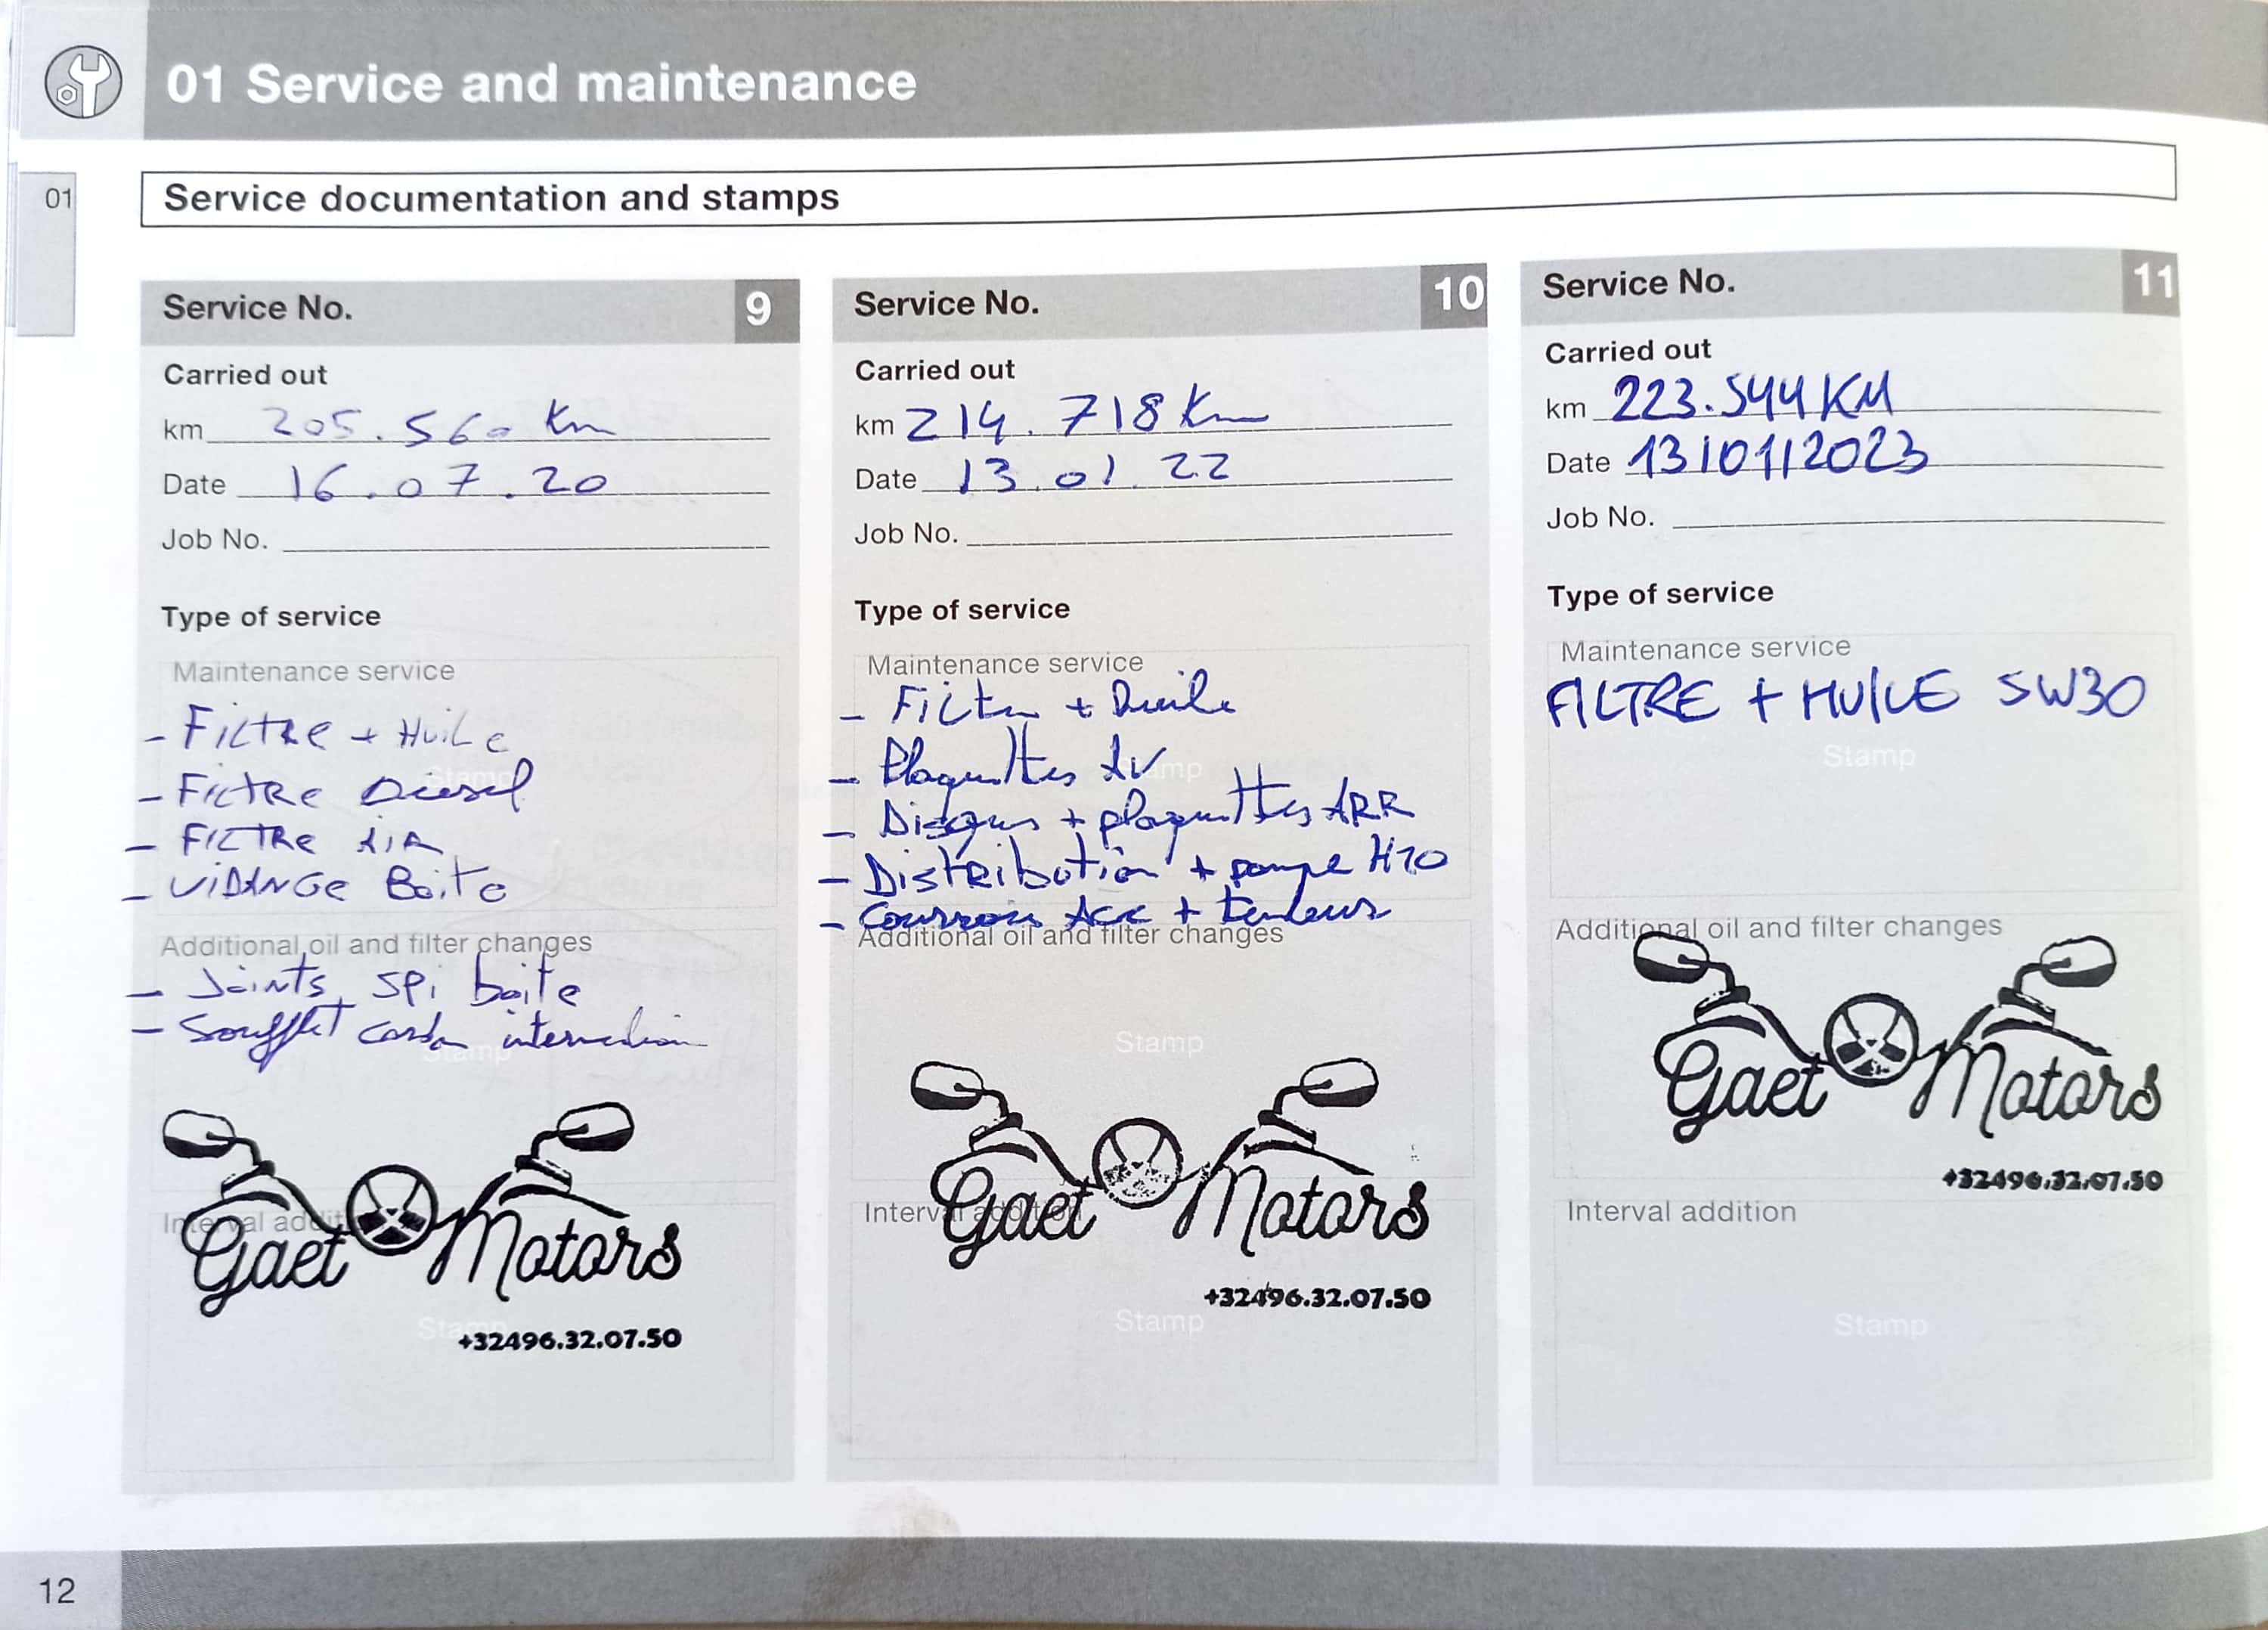 01 Service and maintenance
01
Service documentation and stamps
Service No. 9
Carried out
km 205.560 Km
Date 16.07.20
Job No.
Type of service
Maintenance service
- Filtre + Huile
Stamp
- Filtre Diesel
- Filtre AiR
- ViDANGe Boite
Additional oil and filter changes
- Joints spi boite
- Soufflet cardan intermediaire
Stamp
Interval addition
Gaet Motors
Stamp
+32496.32.07.50
Service No. 10
Carried out
km 214.718 Km
Date 13.01.22
Job No.
Type of service
Maintenance service
- Filtre + Huile
- Plaquettes AV
Stamp
- Disques + plaquettes ARR
- Distribution + pompe H2O
- Courroie Acc + tendeurs
Additional oil and filter changes
Stamp
Interval addition
Gaet Motors
+32496.32.07.50
Stamp
Service No. 11
Carried out
km 223.544 KM
Date 13/01/2023
Job No.
Type of service
Maintenance service
FILTRE + HUILE 5W30
Stamp
Additional oil and filter changes
Gaet Motors
+32496.32.07.50
Interval addition
Stamp
12